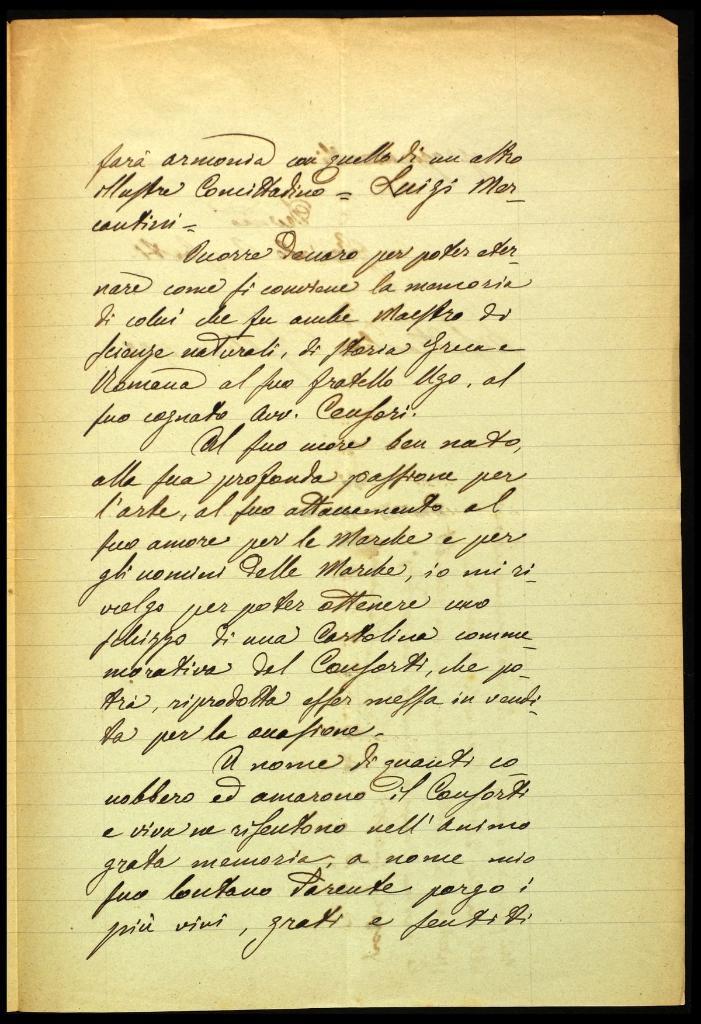 farà armonia con quello di un altro
illustre Concittadino = Luigi Mer-
cantini =
Occorre Denaro per poter eter-
nare come si conviene la memoria
di colui che fu anche Maestro di
scienze naturali, di storia Greca e
Romana al suo fratello Ugo, al
suo cognato Avv. Censori.
Al suo cuore ben nato,
alla sua profonda passione per
l'arte, al suo attaccamento al
suo amore per le Marche e per
gli uomini delle Marche, io mi ri-
volgo per poter ottenere uno
schizzo di una Cartolina comme-
morativa del Conforti, che po-
trà, riprodotta esser messa in vendi-
ta per la occasione.
A nome di quanti co
nobbero ed amarono il Conforti
e viva ne risentono nell'animo
grata memoria, a nome mio
suo lontano Parente porgo i
più vivi, grati e sentiti